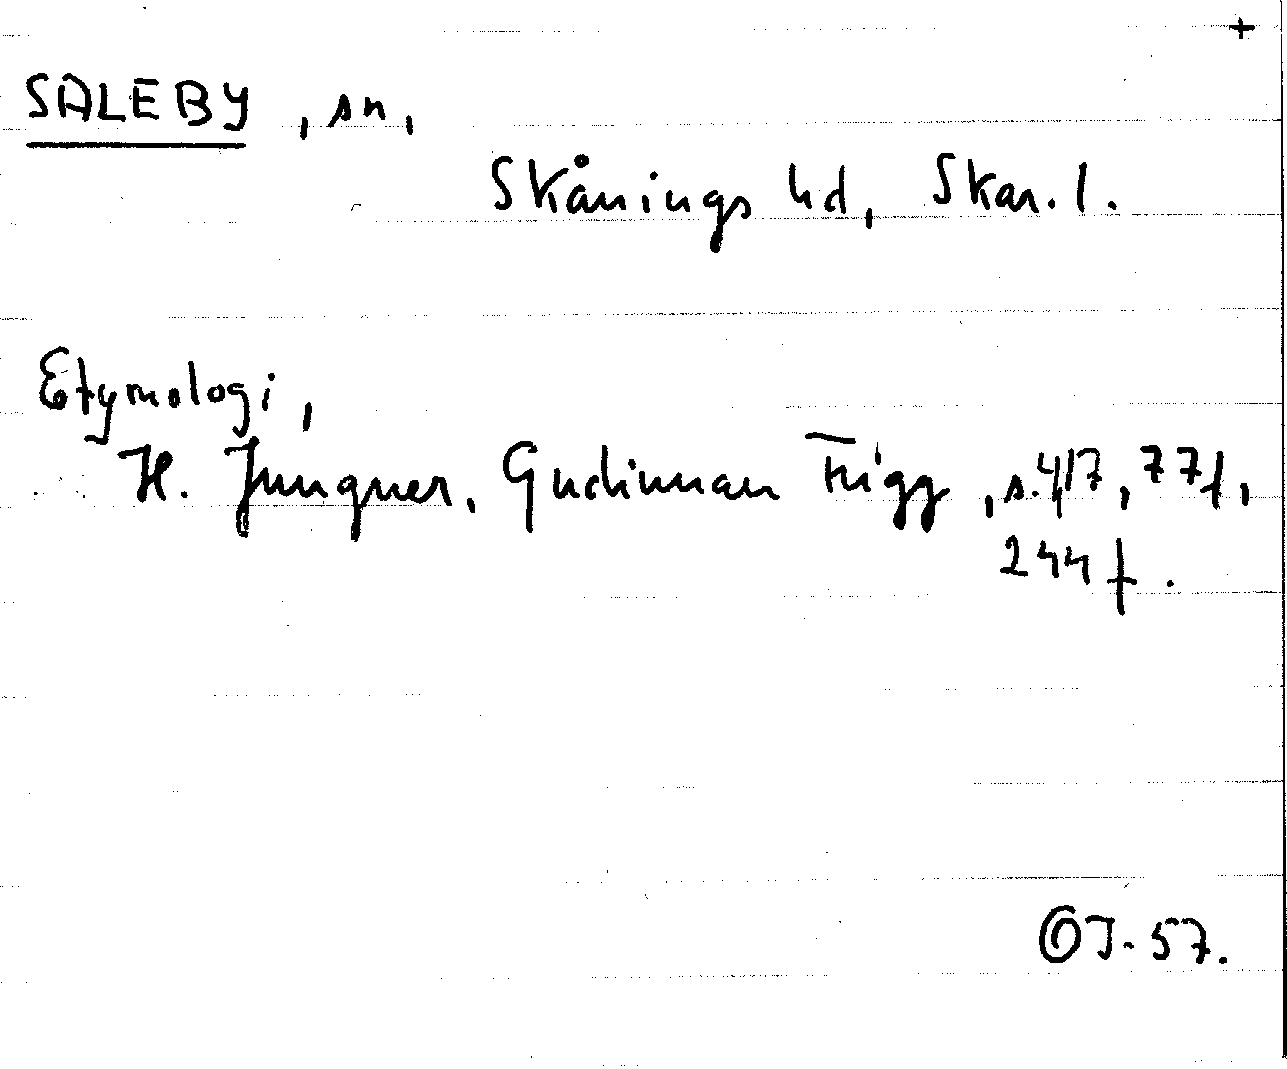 +
SALEBY, sn,
Skånings hd, Skar. l.
Etymologi,
H. Jungner, Gudinnan Frigg, s. 417, 77f,
244 f.
OJ-57.